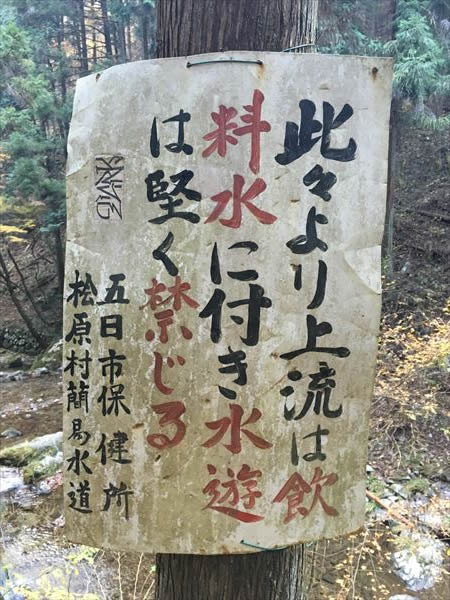 此々より上流は飲
料水に付き水遊
は堅く禁じる
五日市保健所
桧原村簡易水道